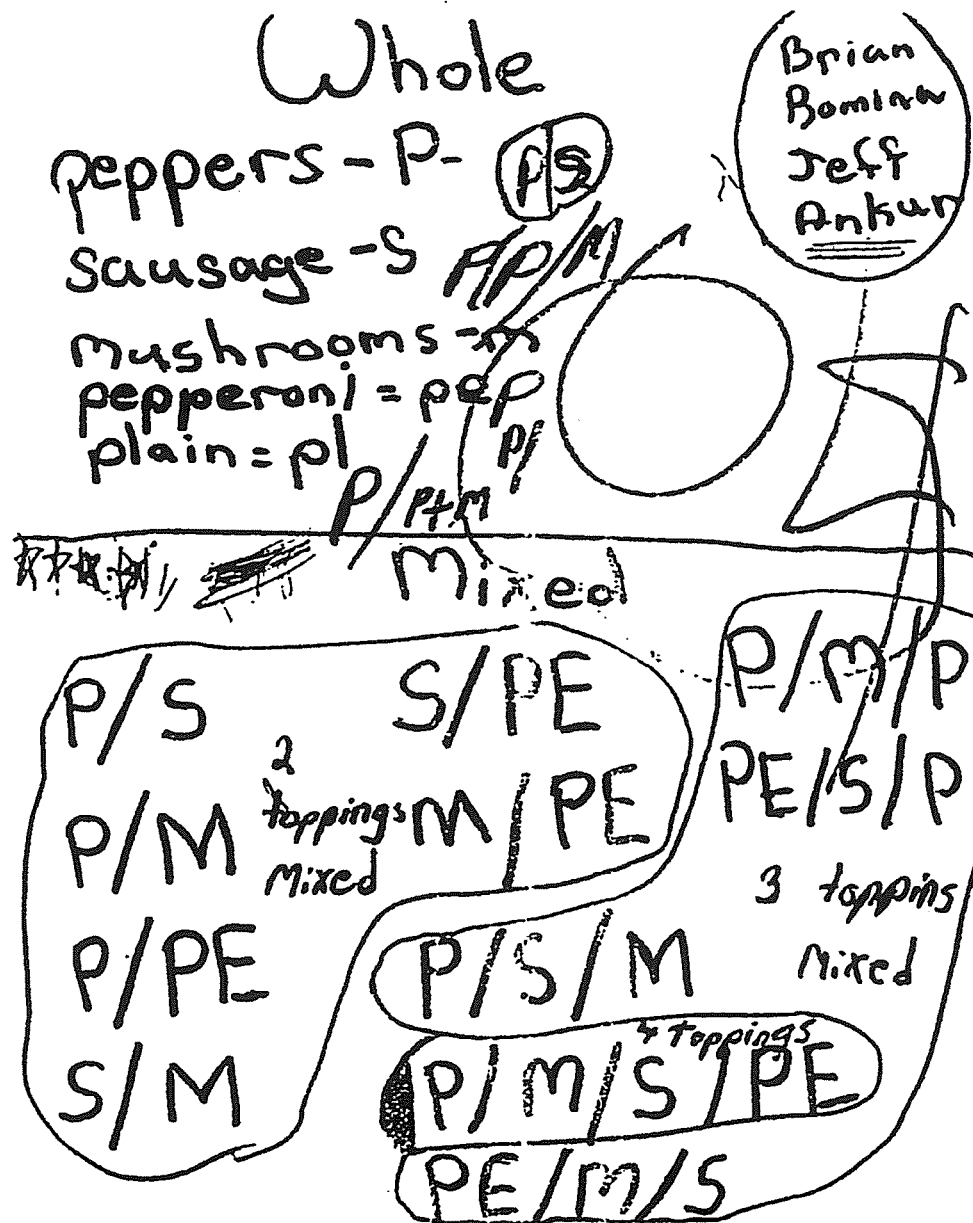 Whole
Brian
Jeff
Ankur
peppers - P - P|S
sausage - S P/P/M
mushrooms - m
pepperoni = pep
plain = pl P/
P/P+M
Mixed
P/S S/PE P/M/P
2 toppings mixed
P/M M/PE PE/S/P
3 topping mixed
P/PE P/S/M
4 toppings
S/M P/M/S/PE
PE/M/S